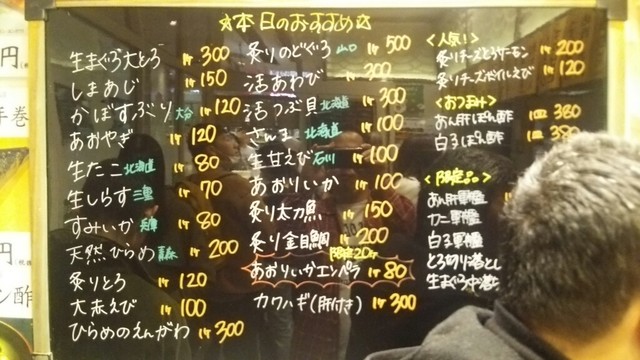 ☆本日のおすすめ☆
生まぐろ大とろ 1ヶ300
しまあじ 1ヶ150
かぼすぶり 大分 1ヶ120
あおやぎ 1ヶ120
生たこ 北海道 1ヶ80
生しらす 三重 1ヶ70
すみいか 兵庫 1ヶ80
天然ひらめ 青森 1ヶ200
炙りとろ 1ヶ120
大赤えび 1ヶ100
ひらめのえんがわ 1ヶ300
炙りのどぐろ 山口 1ヶ500
活あわび 1ヶ300
活つぶ貝 北海道 1ヶ300
さんま 北海道 1ヶ100
生甘えび 石川 1ヶ100
あおりいか 1ヶ100
炙り太刀魚 1ヶ150
炙り金目鯛 1ヶ200
限定20ヶ
あおりいかエンペラ 1ヶ80
カワハギ(肝付き) 1ヶ300
<人気!>
炙りチーズとろサーモン 1ヶ200
炙りチーズボイルえび 1ヶ120
<おつまみ>
あん肝ぽん酢 1皿380
白子ぽん酢 1皿380
<限定品>
あん肝軍艦
カニ軍艦
白子軍艦
とろ切り落とし
生まぐろ中落ち
円
手巻
円
ン酢